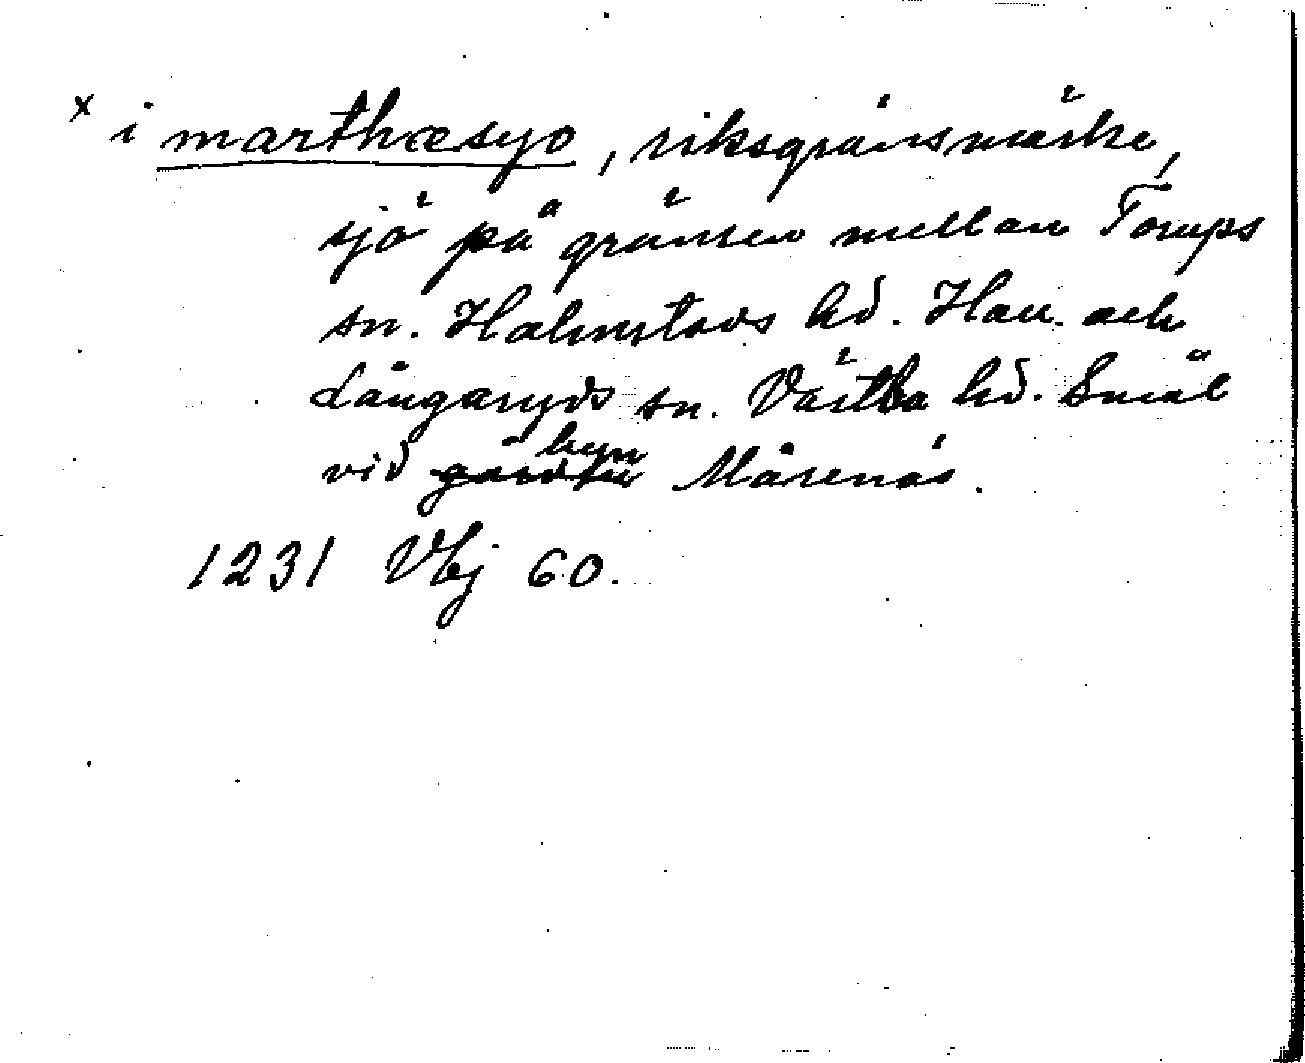 x i marthæsyo, riksgränsmärke,
sjö på gränsen mellan Torups
sn. Halmstads hd. Hall. och
Långaryds sn. Västbo hd. Smål
vid gården byn Mårenäs.
1231 Vbj 60.